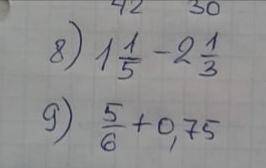 42 30
8) 1 1/5 - 2 1/3
9) 5/6 + 0,75